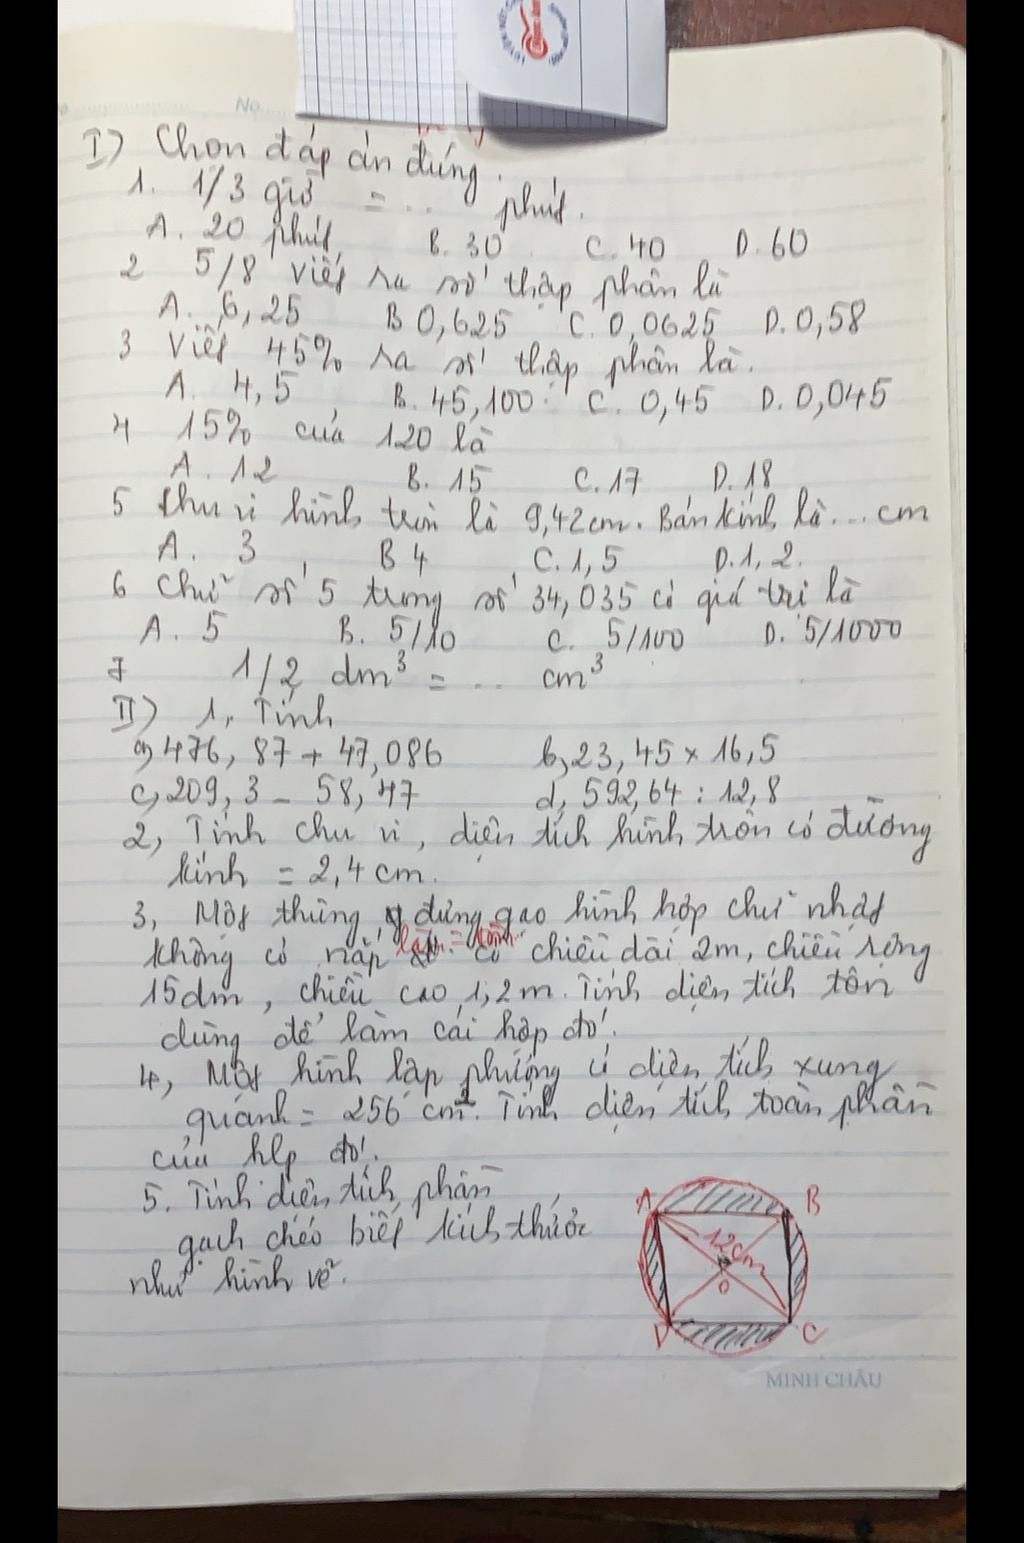 No
I) Chọn đáp án đúng.
1. 1/3 giờ = .. phút.
A. 20 phút B. 30 C. 40 D. 60
2 5/8 viết ra số thập phân là
A. 6,25 B 0,625 C. 0,0625 D. 0,58
3 Viết 45% ra số thập phân là.
A. 4,5 B. 45,100 C. 0,45 D. 0,045
4 15% của 120 là
A. 12 B. 15 C. 17 D. 18
5 Chu vi hình tròn là 9,42cm. Bán kính là...cm
A. 3 B 4 C. 1,5 D. 1,2.
6 Chữ số 5 trong số 34,035 có giá trị là
A. 5 B. 5/10 C. 5/100 D. 5/1000
7 1/2 dm³ = .. cm³
II) 1, Tính
a, 476,87 + 47,086 b, 23,45 x 16,5
c, 209,3 - 58,47 d, 592,64 : 12,8
2, Tính chu vi, diện tích hình tròn có đường
kính = 2,4 cm.
3, Một thùng đựng gạo hình hộp chữ nhật
không có nắp làm = tôn có chiều dài 2m, chiều rộng
15dm, chiều cao 1,2m. Tính diện tích tôn
dùng để làm cái hộp đó.
4, Một hình lập phương có diện tích xung
quanh = 256 cm². Tính diện tích toàn phần
của hlp đó.
5. Tính diện tích phần
gạch chéo biết kích thước
như hình vẽ.
A B
12cm
O
D C
MINH CHÂU